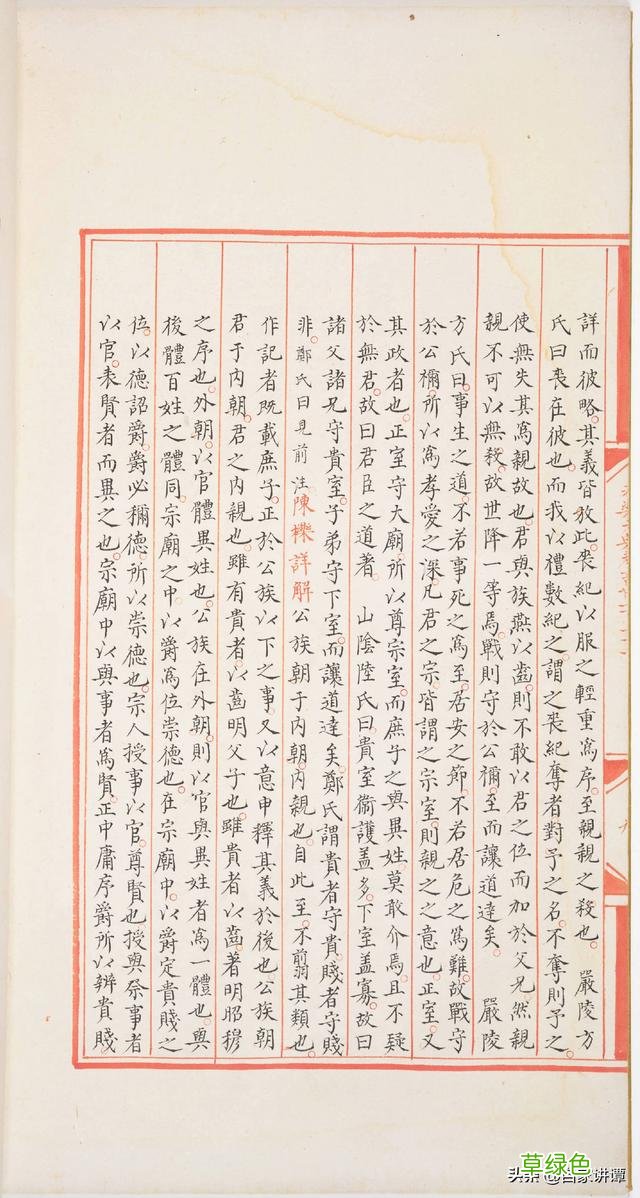 詳而彼略其義皆放此喪紀以服之輕重為序至親親之殺也　嚴陵方
氏曰喪在彼也而我以禮數紀之謂之喪紀奪者對予之名不奪則予之
使無失其為親故也君與族燕以齒則不敢以君之位而加於父兄然親
親不可以無殺故世降一等焉戰則守於公禰至而讓道達矣　嚴陵
方氏曰事生之道不若事死之為至居安之節不若居危之為難故戰守
於公禰所以為孝愛之深凡君之宗皆謂之宗室則親之之意也正室又
其政者也正室守大廟所以尊宗室而庶子之與異姓莫敢介焉且不疑
於無君故曰君臣之道著　山陰陸氏曰貴室衛護蓋多下室蓋寡故曰
諸父諸兄守貴室子弟守下室而讓道達矣鄭氏謂貴者守貴賤者守賤
非鄭氏曰見前注陳櫟詳解公族朝于內朝內親也自此至不翦其類也
作記者既載庶子正於公族以下之事又以意申釋其義於後也公族朝
君于內朝君之內親也雖有貴者以齒明父子也雖貴者以齒著明昭穆
之序也外朝以官體異姓也公族在外朝則以官與異姓者為一體也與
後體百姓之體同宗廟之中以爵為位崇德也在宗廟中以爵定貴賤之
位以德詔爵爵必稱德所以崇德也宗人授事以官尊賢也授與祭事者
以官表賢者而異之也宗廟中以與事者為賢正中庸序爵所以辨貴賤
九
草绿色
头条 @百家讲谭